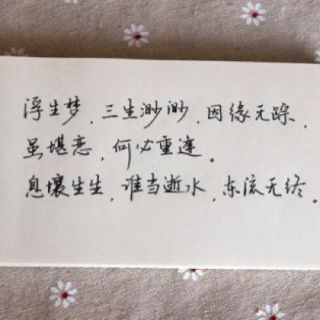 浮生梦，三生渺渺，因缘无踪，
虽堪恋，何必重逢。
息壤生生，谁当逝水，东流无终。